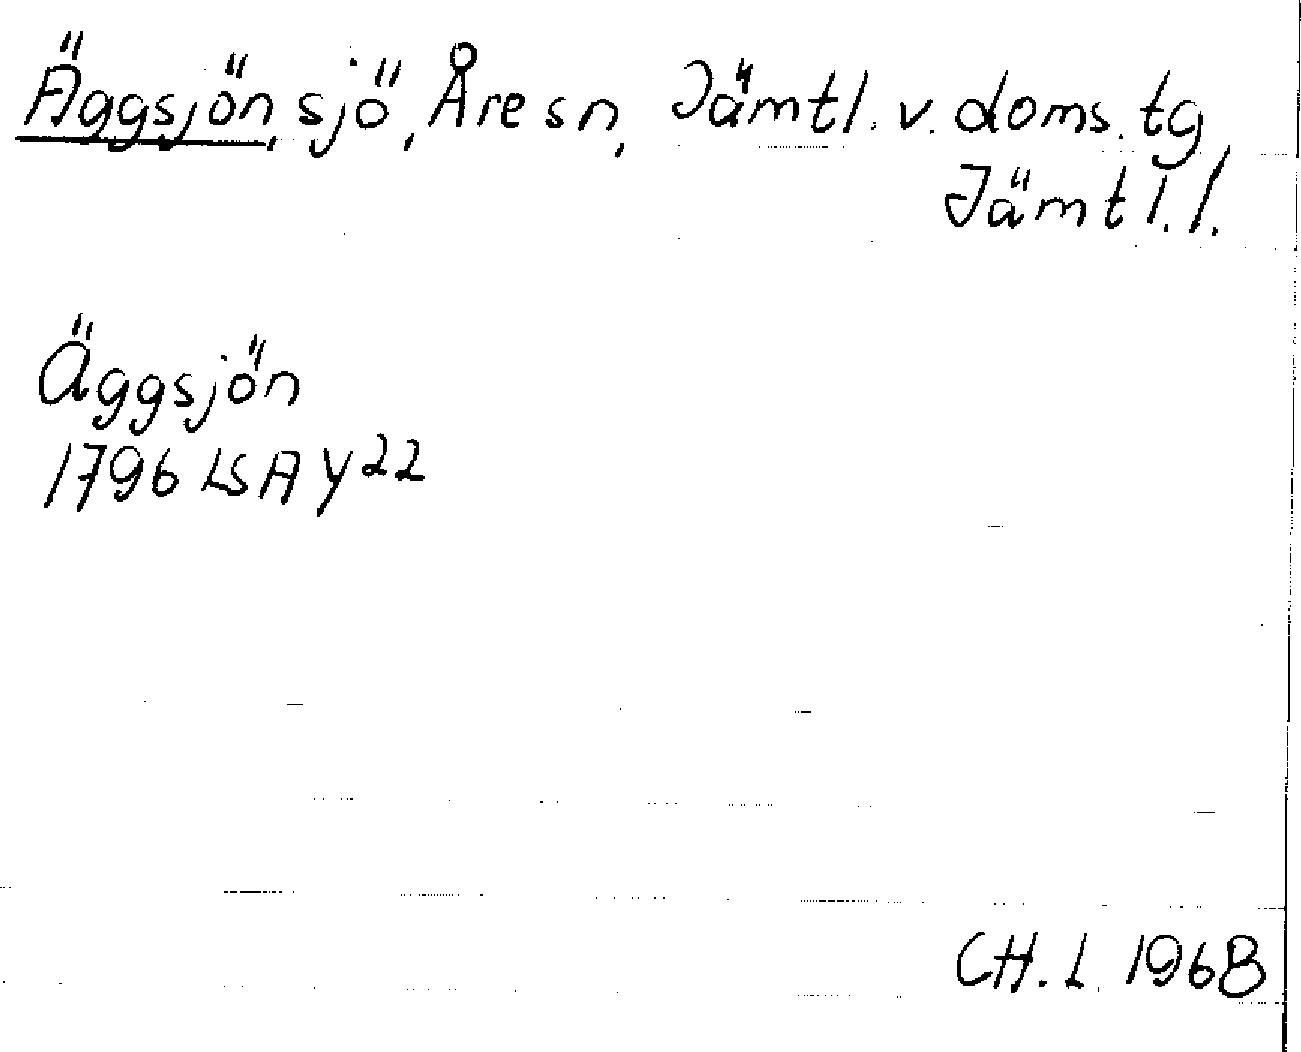 Äggsjön, sjö, Åre sn, Jämtl. v. doms. tg
Jämtl. l.
Äggsjön
1796 LSA Y22
CH. L. 1968